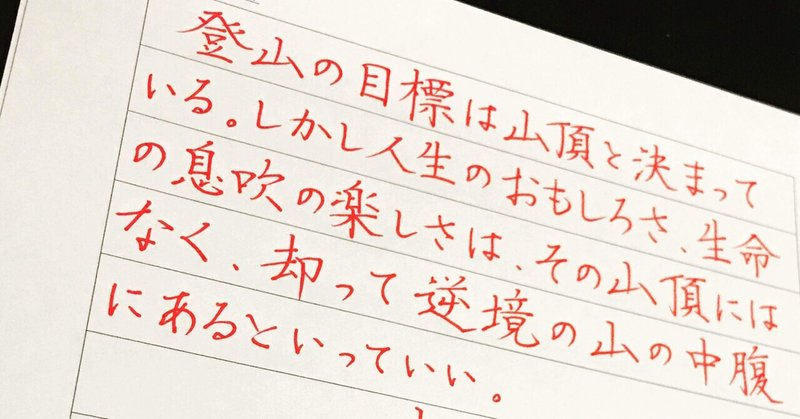 登山の目標は山頂と決まって
いる。しかし人生のおもしろさ、生命
の息吹の楽しさは、その山頂には
なく、却って逆境の山の中腹
にあるといっていい。